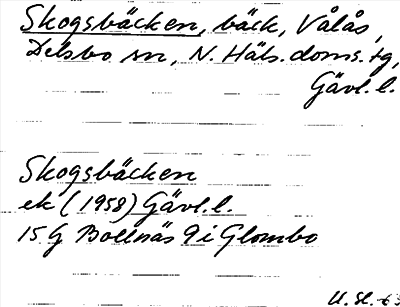 Skogsbäcken, bäck, Vålås,
Delsbo sn, N. Häls. doms. tg,
Gävl. l.
Skogsbäcken
ek (1958) Gävl. l.
15 G Bollnäs 9 i Glombo
U. Sl. 63